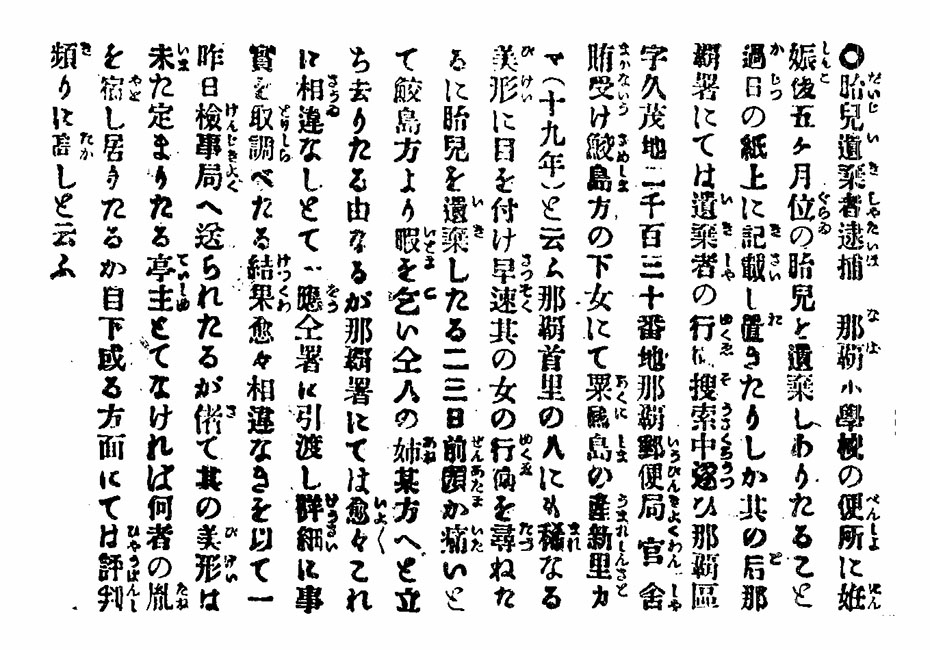 〇胎兒遺棄者逮捕　那覇小學校の便所に姙
娠後五ヶ月位の胎兒を遺棄しありたることと
過日の紙上に記載し置きたりしか其の后那
覇署にては遺棄者の行衛搜索中遂ひ那覇區
字久茂地二千百三十番地那覇郵便局官舍
賄受け鮫島方の下女にて粟國島の產新里カ
マ（十九年）と云ふ那覇首里の人にも稀なる
美形に目を付け早速其の女の行衛を尋ねた
るに胎兒を遺棄したる二三日前頭か痛いと
て鮫島方より暇を乞い仝人の姉某方へと立
ち去りたる由なるが那覇署にては愈々これ
に相違なしとて一應仝署に引渡し詳細に事
實を取調べたる結果愈々相違なきを以て一
昨日檢事局へ送られたるが偖て其の美形は
未た定まりたる亭主とてなければ何者の胤
を宿し居りたるか目下或る方面にては評判
頻りに高しと云ふ